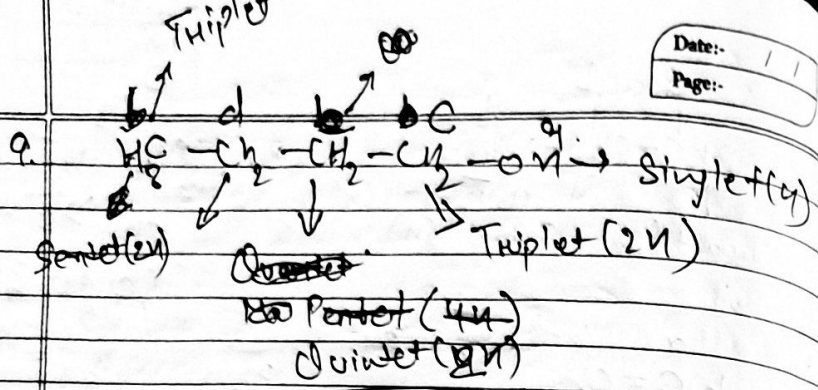 Triplet
Date:-
Page:-
b d c
9. H3C - CH2 - CH2 - CH2 - OH → Singlet(H)
Sextet(2H) Triplet (2H)
Pentet (4H)
Quintet (2H)